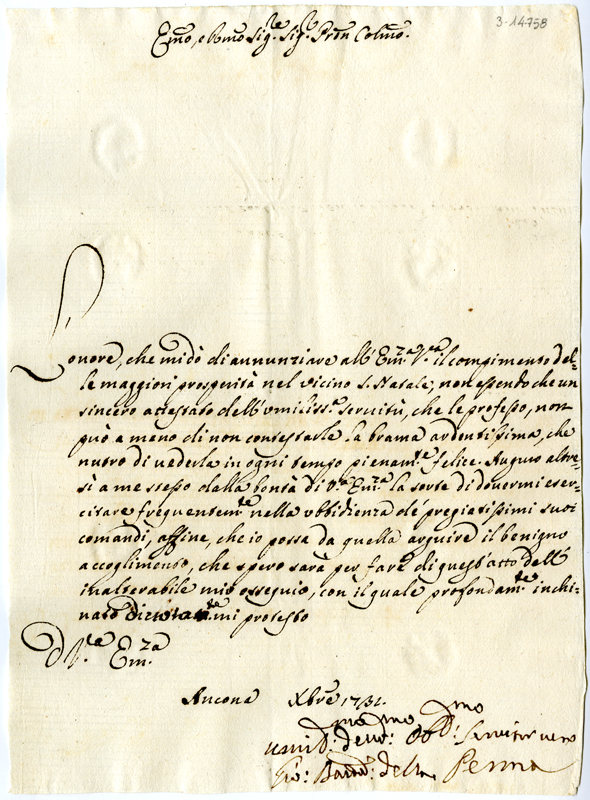 3-14758
Em̃o, e Rm̃o Sig.re Sig.r Pron Colm̃o.
L'onore, che mi dò di annunziare all'Em.za V.ra il compimento del-
le maggiori prosperità nel vicino S. Natale, non essendo che un
sincero attestato dell'umiliss.a servitù, che le professo, non
può a meno di non contestarle la brama ardentissima, che
nutro di vederla in ogni tempo pienam.te felice. Auguro altre-
sì a me stesso dalla bontà di V.ra Em.za la sorte di dovermi eser-
citare frequentem.te nella ubbidienza de' pregiatissimi suoi
comandi, affine, che io possa da quella arguire il benigno
accoglimento, che spero sarà per fare di quest'atto dell'
inalterabile mio ossequio, con il quale profondam.te inchi-
nato mi protesto
D V.ra Em.za
Ancona Xbre 1731.
umil.mo dev.mo obb.mo Servitor vero
Gio: Batt.a della Penna